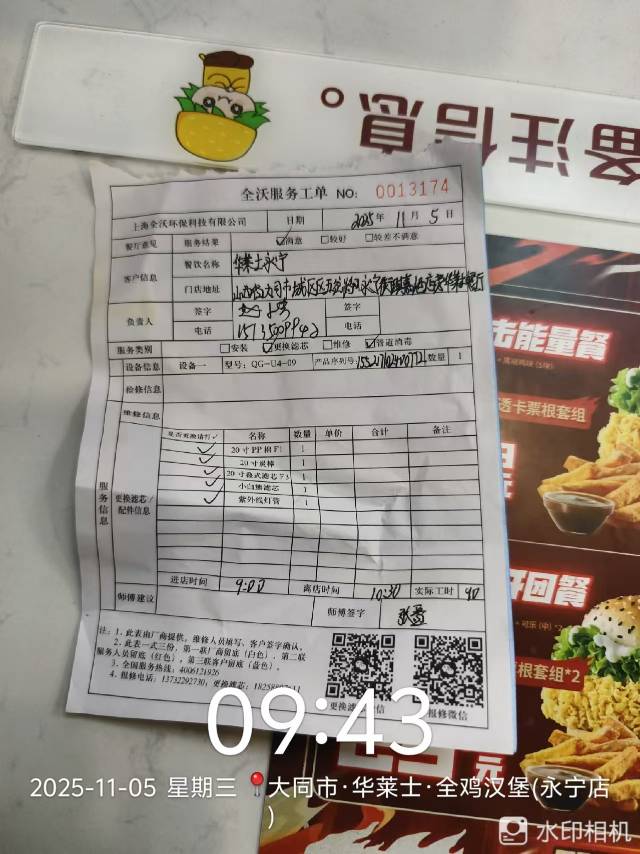 备注信息。
全沃服务工单 NO: 0013174
上海全沃环保科技有限公司 日期 2025年11月5日
餐厅意见 服务结果 ☑满意 □较好 □较差不满意
客户信息 餐饮名称 华莱士永宁
门店地址
负责人 签字 签字
电话 电话
服务类别 □安装 ☑更换滤芯 □维修 ☑管道消毒
设备信息 设备一 型号: QG-U4-09 产品序列号: 数量 1
检修信息
维修信息
服务信息
更换滤芯/配件信息
是否更换请打✓ 名称 数量 单价 合计 备注
✓ 20寸PP棉F1 1
✓ 20寸炭棒 1
✓ 20寸叠式滤芯F3 1
✓ 小白熊滤芯 1
✓ 紫外线灯管 1
进店时间 9:00 离店时间 10:30 实际工时 90
师傅建议 师傅签字
注: 1、此表由厂商提供, 维修人员填写、客户签字确认,
2、此表一式三份, 第一联厂商留底 (白色)、第二联
服务人员留底 (红色)、第三联客户留底 (蓝色)。
3、全国服务热线: 4006121926
4、报修电话: 13732292730; 更换滤芯:
更换滤芯微信 报修微信
击能量餐
透卡票根套组
开团餐
票根套组*2
元
09:43
2025-11-05 星期三 大同市·华莱士·全鸡汉堡(永宁店
)
水印相机